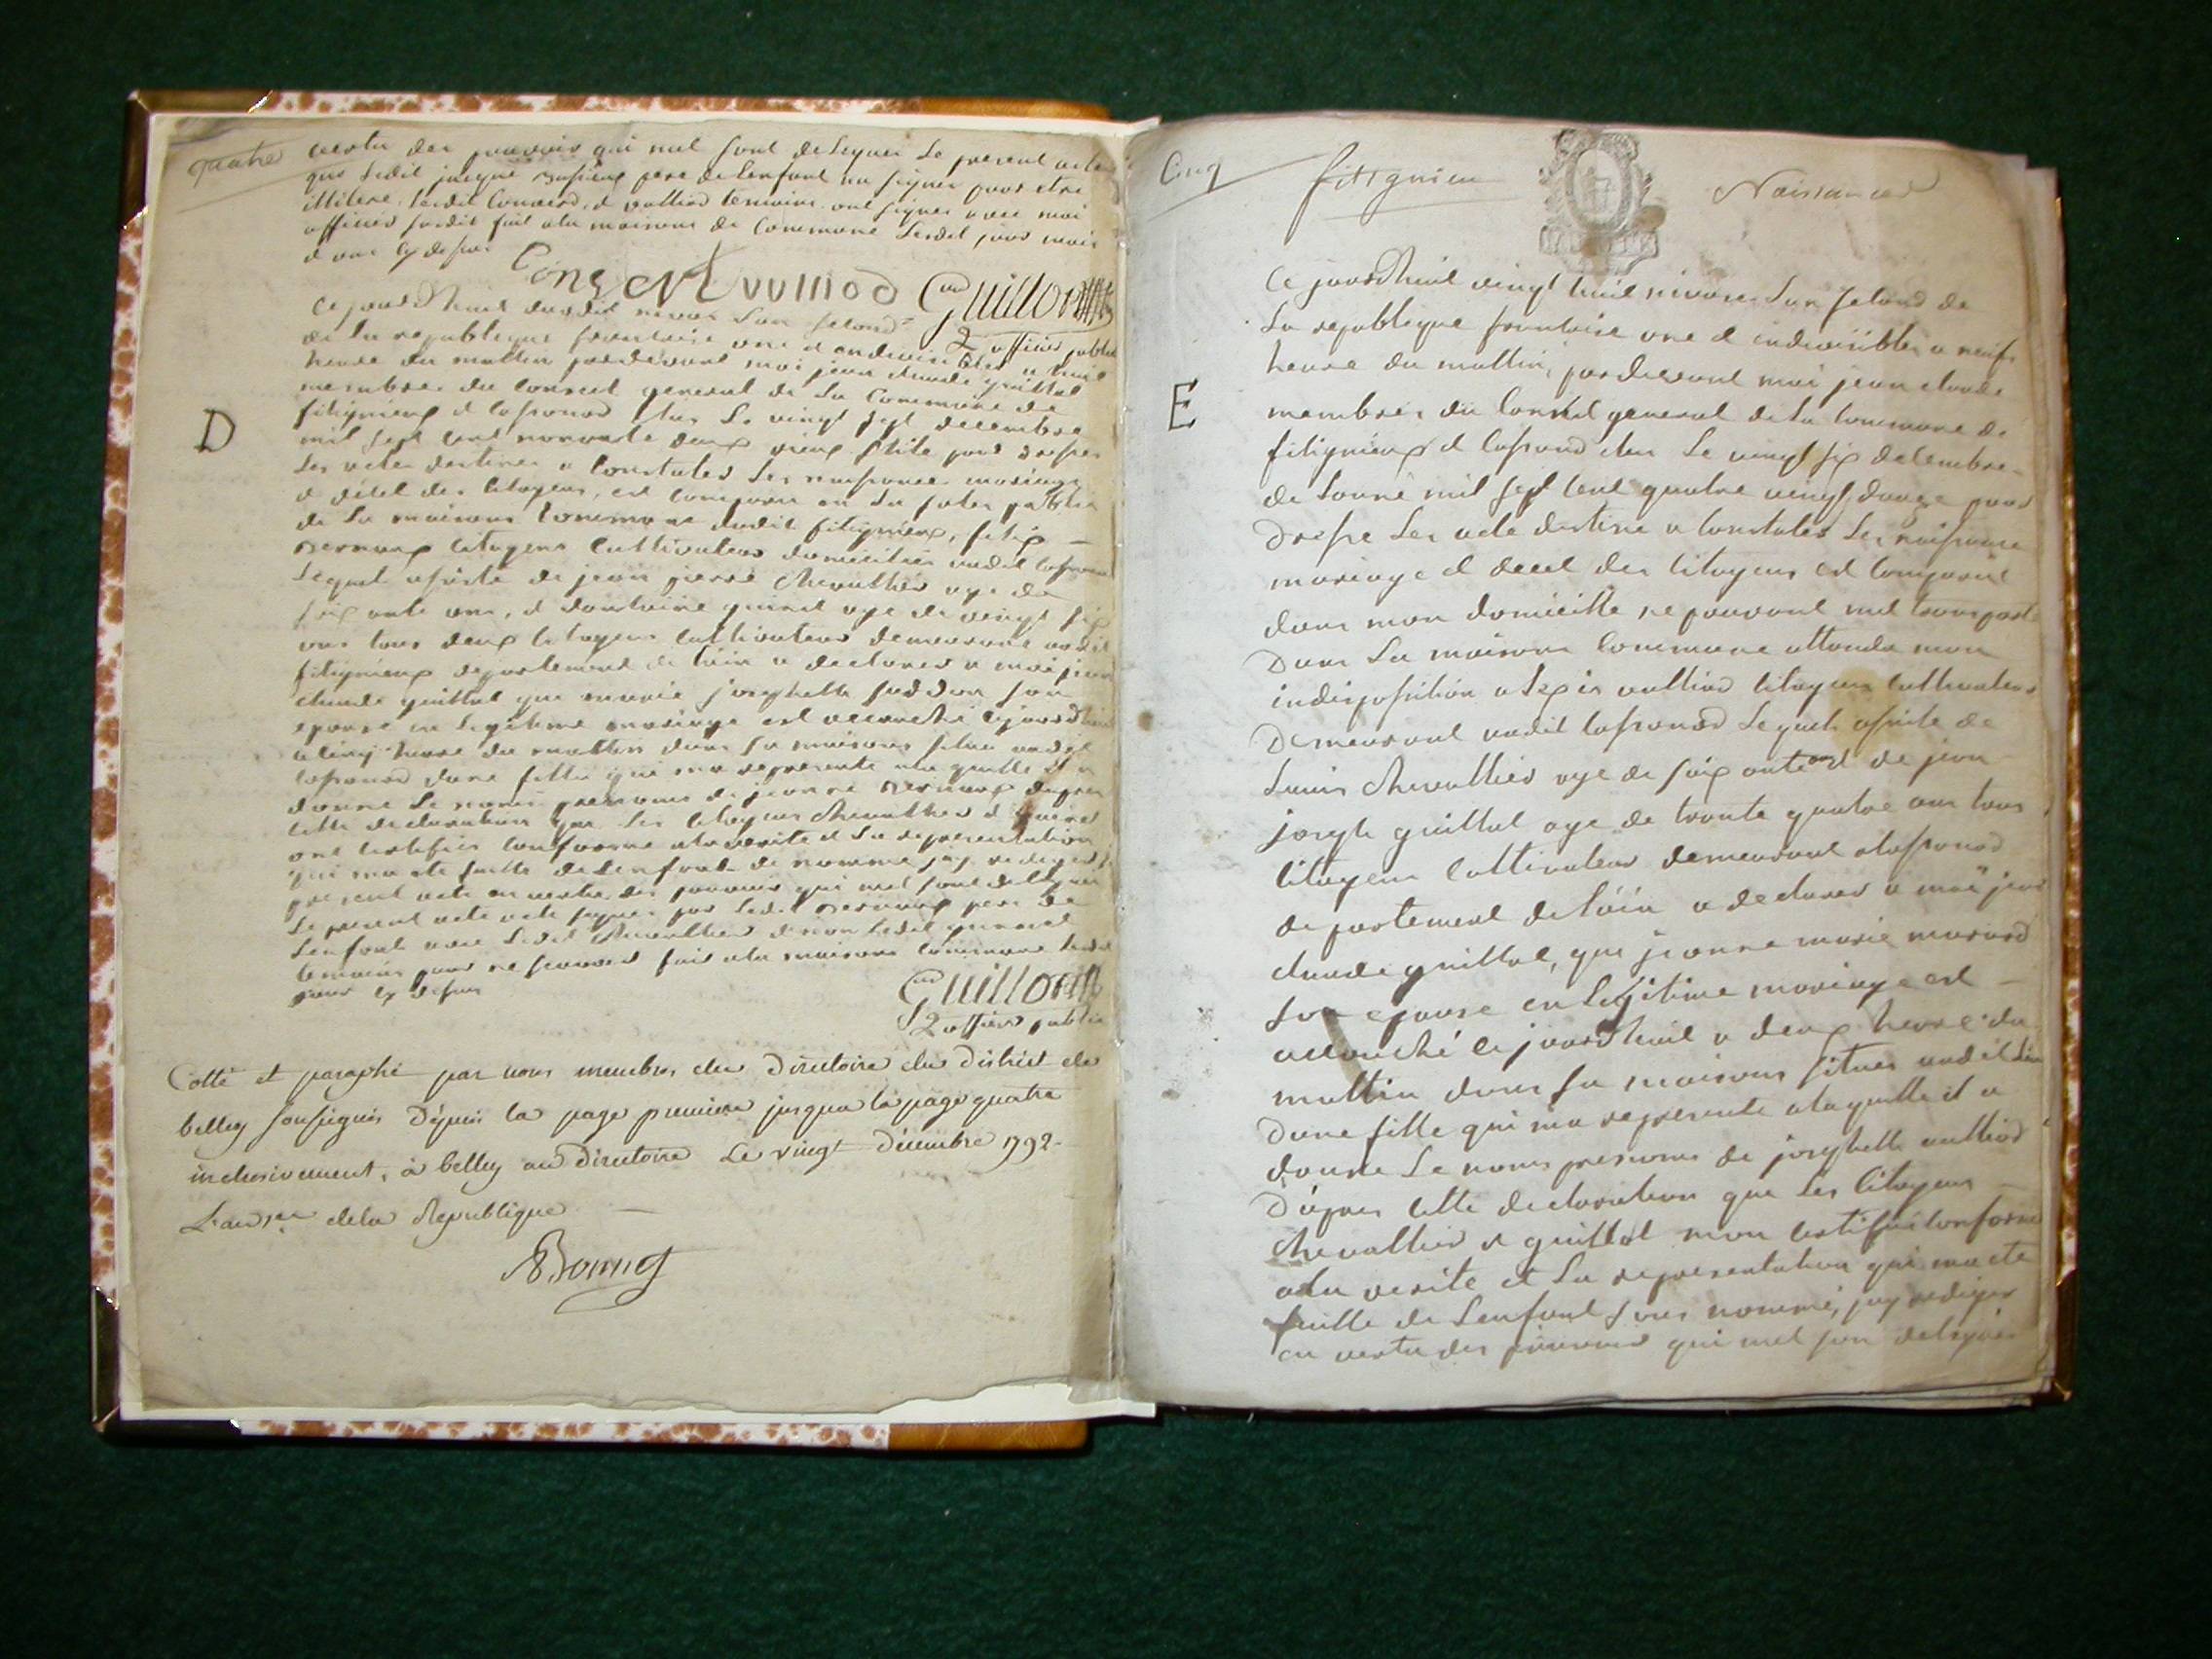 quatre
vertu des pouvoirs qui mel sont deleguer Le present acte
que Ledit jacque pere de Lenfant na signer pour etre
illitere. Lesdit vulliod temoins ont signer avec moi
officier susdit fait ala maisons de Commune Lesdit jour mois
d ans cy dessus
vulliod Guillot
2 officier public
D
ce jourdhuit nivos Lan second
de La republique francaise une et indivisible a huit
heure du mattin pardevant moi jean claude guillot
membres du conseil general de La Commune de
fitignieux et lassonod elus Le vingt sept decembre
mil sept cent nonante deux vieux stile pour dresser
Les actes destines a constates Les naissances mariage
et décel des Citoyens, est comparu en La sales publics
de La maisons Commune dudit fitignieux, felix
Bernard citoyens cultivateur domicilier audit
Lequel assisté de jean pierre Chevallier age de
soixante ans, et quinet age de vingt six
ans tous deux citoyens cultivateur demeurant audit
fitignieux departement de lain a declarer a moi jean
claude guillot que marie josephette son
epouse en Legitime mariage est accouché cejourdhuit
a cinq heure du mattin dans sa maisons situé audit
dune fille qui ma represente ala quelle il a
donné Le noms prenoms de jeanne Bernard dapres
cette declaration que Les citoyens Chevallier et quinet
ont certifier conforme ala verite et La representation
qui ma ete faitte de Lenfant de nomme jay rediger Le
present acte en vertu des pouvoirs qui mel sont deleguer
Le present acte ete signer par Ledit Bernard pere de
Lenfant avec Ledit Chevallier et non Ledit quinet
temoins pour ne scavoir fait ala maisons commune Lesdit
jour cy dessus
Guillot
2 officier public
Cotté et paraphé par nous membres du Directoire du District de
belley soussignés Depuis la page premiere jusqua la page quatre
inclusivement, à belley au Directoire Le vingt Décembre 1792.
L'an 1er dela Republique
Cinq
fitignieu
Naissances
E
Ce jourdhuit vingt huit nivose Lan second de
La republique francaise une et indivisibles a neufs
heure du mattin, pardevant moi jean claude
membres du Conseil general de La Commune de
fitignieux et lassonod elus Le vingt six decembre
de Lanné mil sept cent quatre vingt douze pour
Dresse Les acte destine a constates Les naissance
mariage et decel des Citoyens est comparue
dans mon domicille ne pouvant mel transporte
Dans La maisons Commune attendu mon
indisposition alexis vulliod citoyens cultivateur
Demeurant audit lassonod Lequel assiste de
Louis Chevallier age de soixante ans et de jean
joseph guillot age de trante quatre ans tous
citoyens cultivateur demeurant alassonod
departement de lain a declarer a moi jean
claude guillot, que jeanne marie
son epouse en Legitime mariage est
accouché ce jourdhuit a deux heure du
mattin dans sa maisons situer audit Lieu
Dune fille qui ma represente alaquelle il a
donne Le noms prenoms de josephette vulliod
D'apres cette declaration que Les Citoyens
chevallier et guillot mon certifier conforme
ala verité et La representation qui ma ete
faitte de Lenfant sous nommé, jay rediger
en vertu des pouvoirs qui mel son deleguer